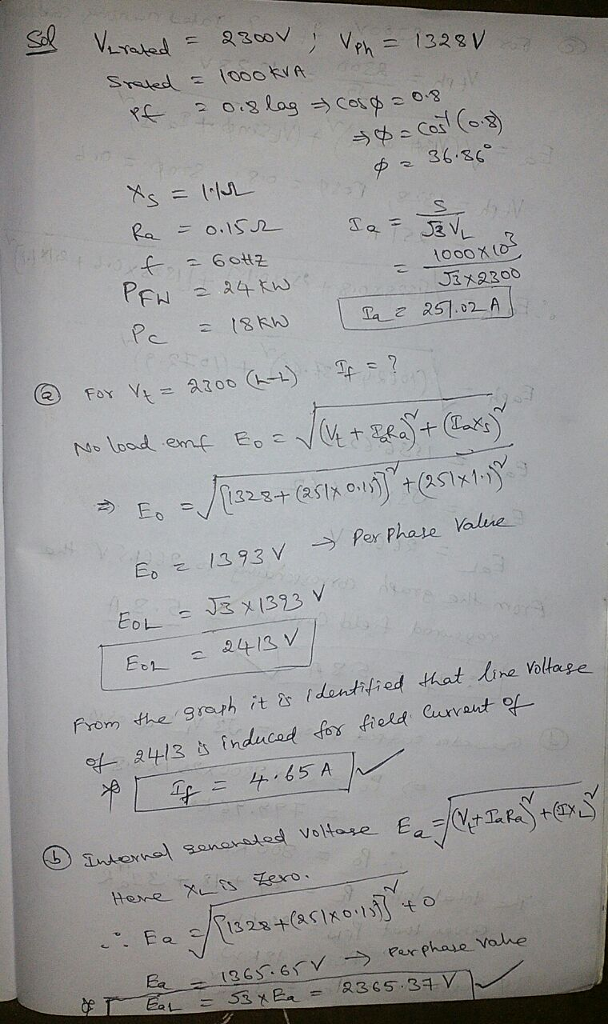 Sol VLrated = 2300V ; Vph = 1328V
Srated = 1000KVA
Pf = 0.8 lag ⇒ cosφ = 0.8
⇒ φ = cos⁻¹(0.8)
φ = 36.86°
Xs = 1.1Ω
Ra = 0.15Ω Ia = S/√3 VL
f = 60HZ = 1000×10³/√3×2300
PFW = 24 KW
Pc = 18 KW Ia = 251.02 A
(a) For Vt = 2300 (L-L) If = ?
No load emf Eo = √(Vt + IaRa)² + (IaXs)²
⇒ Eo = √[1328 + (251×0.15)]² + (251×1.1)²
Eo = 1393 V → Per phase value
EOL = √3 × 1393 V
EOL = 2413 V
From the graph it is identified that line voltage
of 2413 is induced for field current of
If = 4.65 A ✓
(b) Internal generated voltage Ea = √(Vt + IaRa)² + (IXL)²
Here XL is zero.
∴ Ea = √[1328 + (251×0.15)]² + 0
Ea = 1365.65 V → per phase value
EaL = √3 × Ea = 2365.37 V ✓